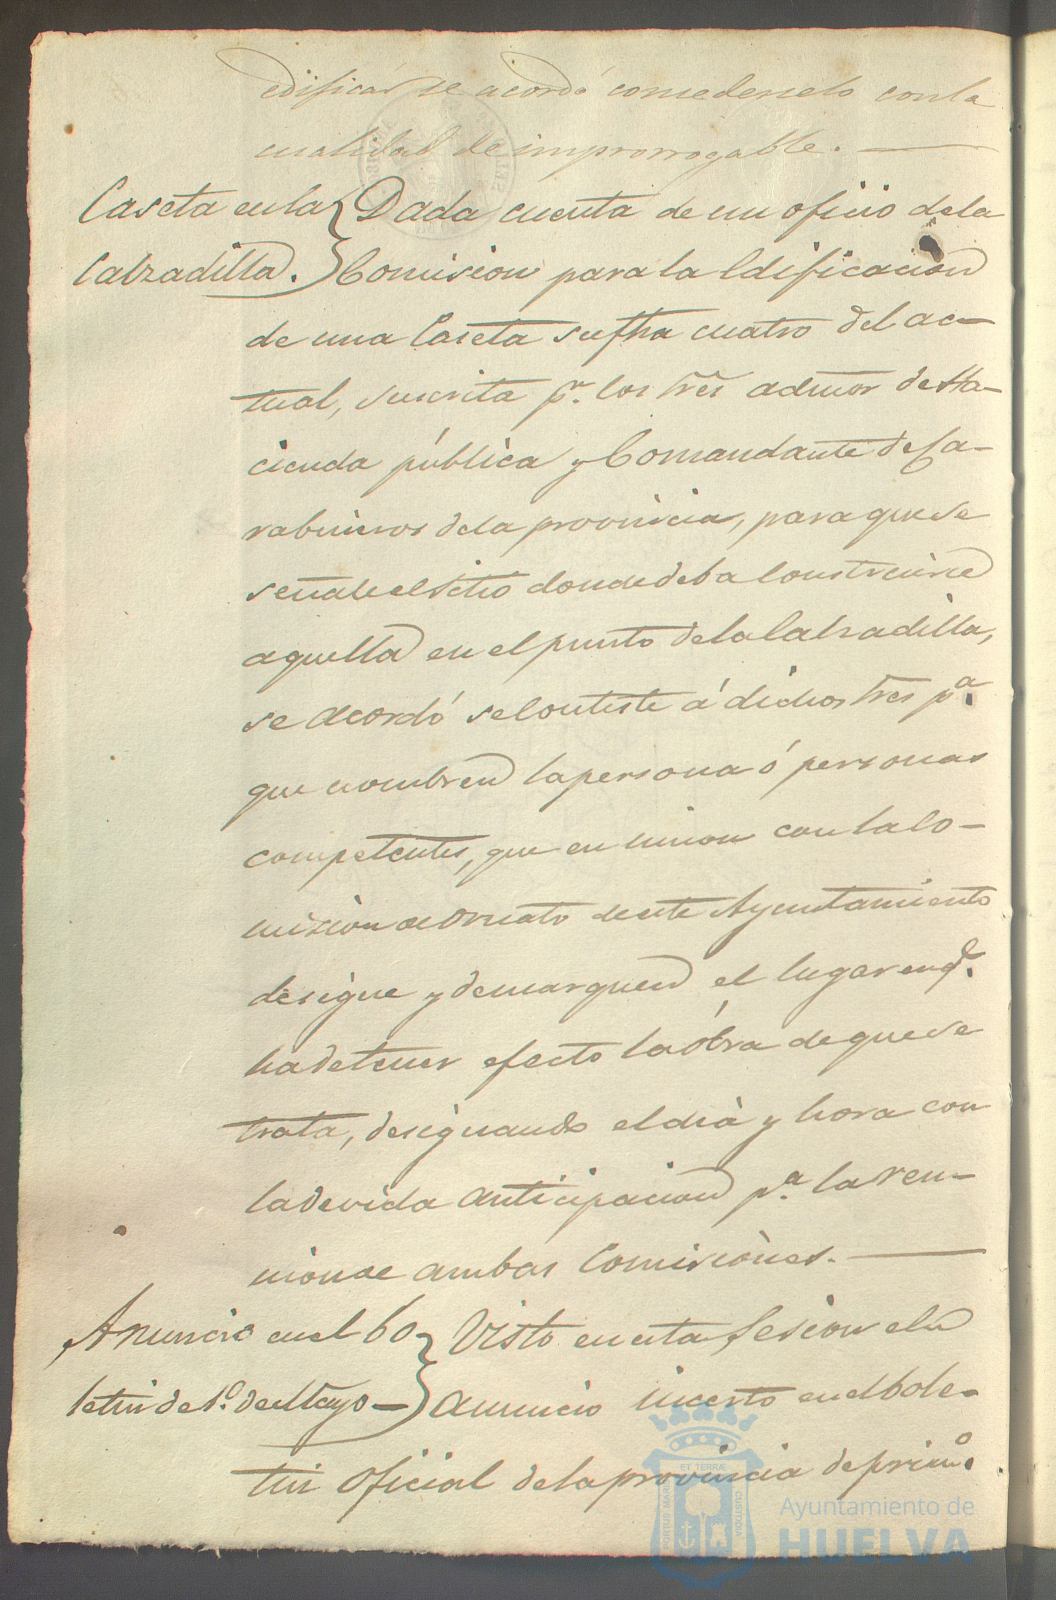 edificar se acordó consederselo con la
cualidad de improrrogable.
Caseta en la
Calzadilla.
Dada cuenta de un oficio dela
Comision para la Edificacion
de una Caseta su fha cuatro del ac-
tual, suscrita pr. los Sres admor de Ha-
cienda pública y Comandante de Ca-
rabineros dela provincia, para que se
señale el sitio donde deba Construirse
aquella en el punto dela Calzadilla,
se acordó se Conteste á dichos Sres pa.
que nombren la persona ó personas
competentes, que en union con la Co-
mision de Ornato de este Ayuntamiento
designe y demarquen el lugar en q.e
ha de tener efecto la óbra de que se
trata, designando el dia y hora con
la devida anticipacion pa. la reu-
nion de ambas Comisiones.
Anuncio en el bo-
letin de 1º. de Mayo
Visto en esta Sesion el
anuncio incerto en el bole-
tin Oficial de la provincia de primo.
PORTUS MARIS
ET TERRÆ
CUSTODIA
Ayuntamiento de
HUELVA